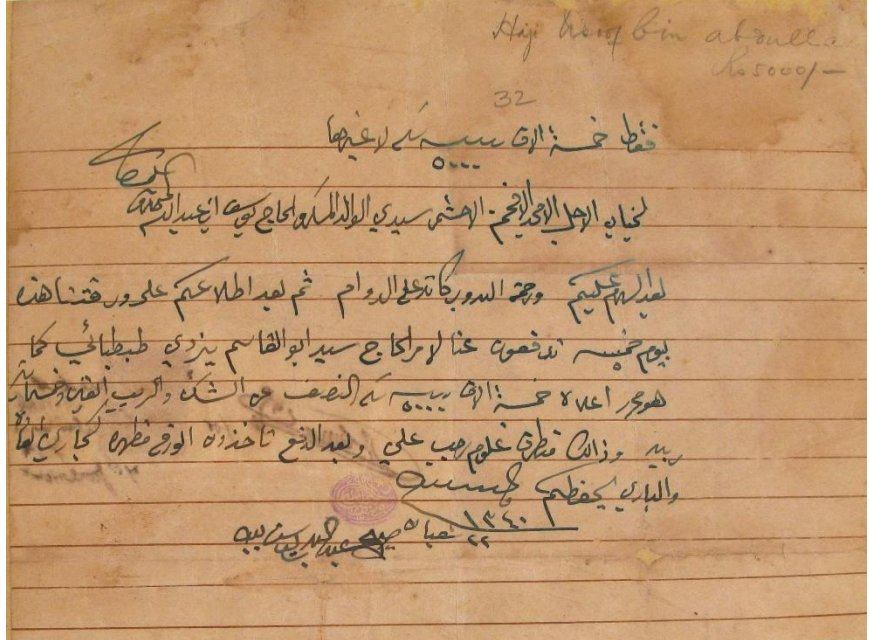 Haji bin abdulla
Rs 5000/-
32
فقط خمسة الاف ربيه سكه لا غيرها
٥٠٠٠
لجناب الاجل الامجد الافخم الاحشم سيدي الوالد المكرم الحاج يوسف ابن عبدالله
بعد السلام عليكم ورحمة الله وبركاته على الدوام ثم بعد اطلاعكم على ورقتنا هذه
يوم خمسه تدفعون عنا لامر الحاج سيد ابو القاسم يزدي طبطبائي كما
هو محرر اعلاه خمسة الاف ربيه سكه النصف عن الشك والريب الفين وخمسمائة
ربيه وذالك مطرق غلوم رجب علي وبعد الدفع تاخذون الورقه مظهره كجاري
والباري يحفظكم
٢٢ شعبان ١٣٤٠
عبدالله بن يوسف